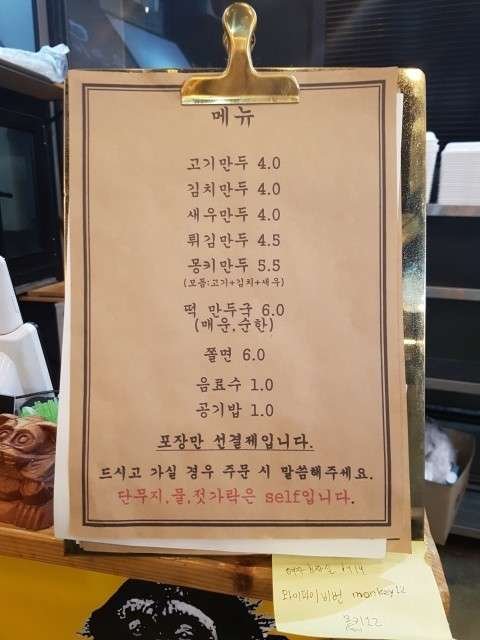 메뉴
고기만두 4.0
김치만두 4.0
새우만두 4.0
튀김만두 4.5
몽키만두 5.5
(모듬:고기+김치+새우)
떡 만두국 6.0
(매운,순한)
쫄면 6.0
음료수 1.0
공기밥 1.0
포장만 선결제입니다.
드시고 가실 경우 주문 시 말씀해주세요.
단무지,물,젓가락은 self입니다.
와이파이 비번 monkey12